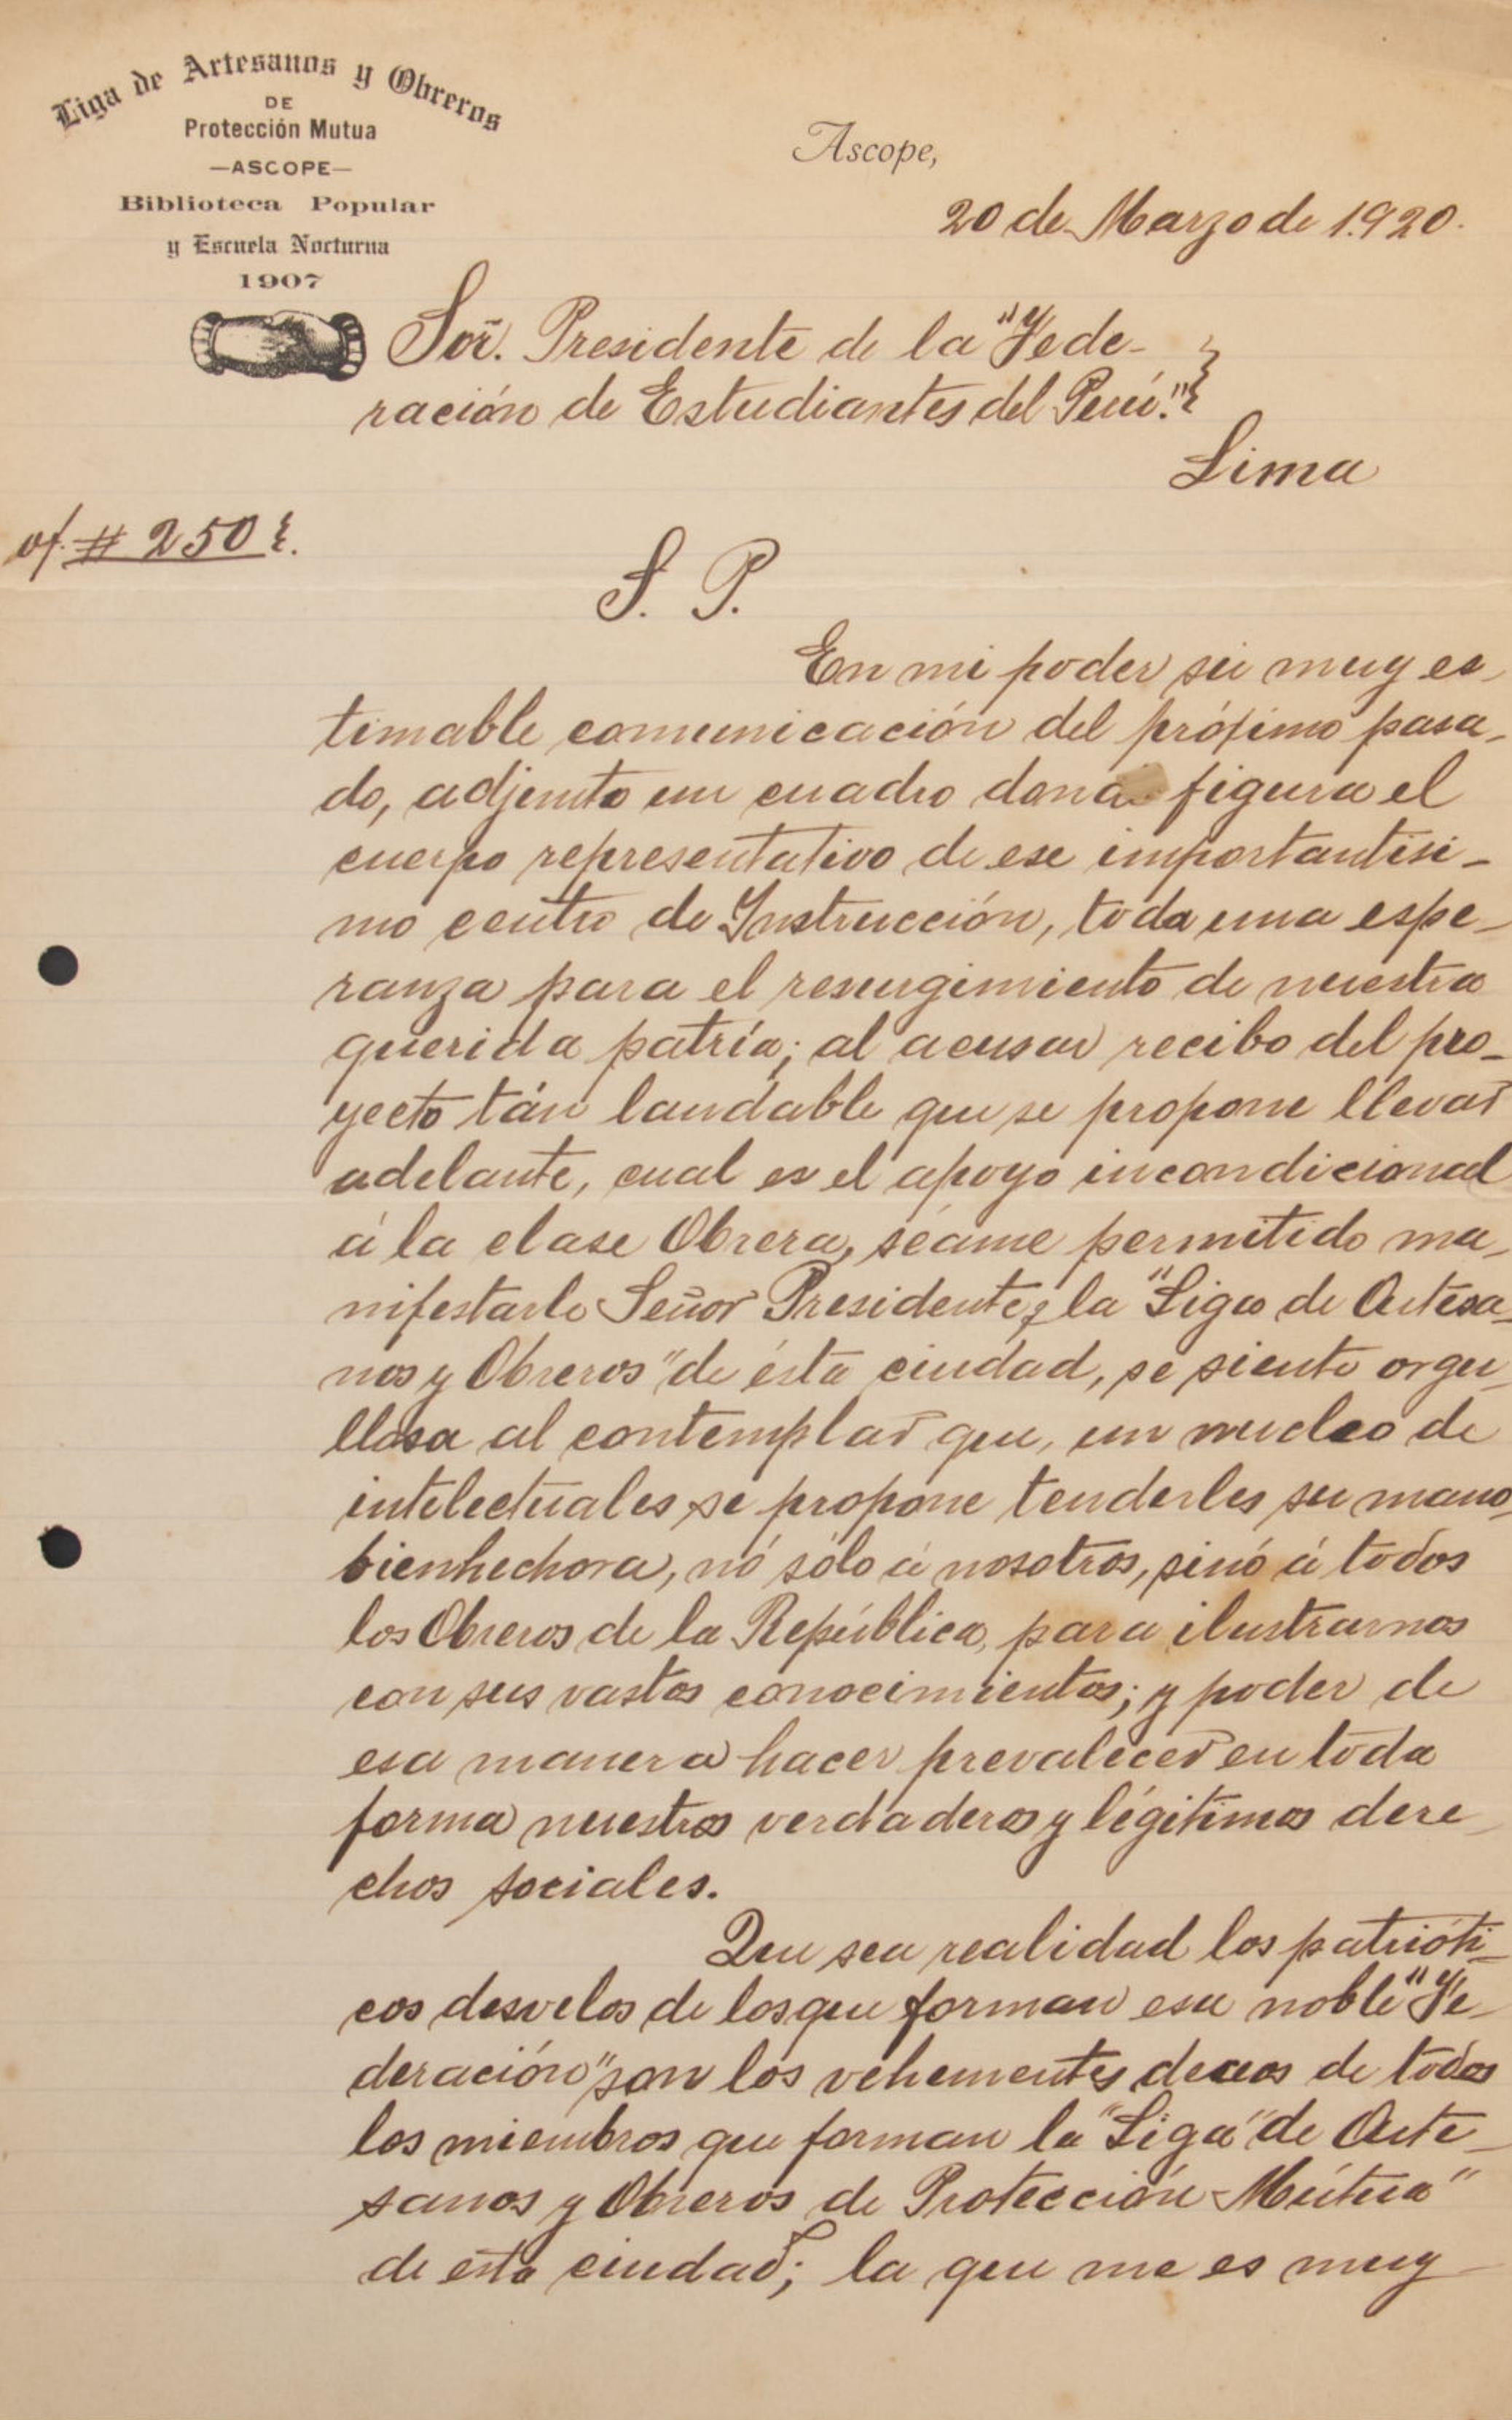 Liga de Artesanos y Obreros
DE
Protección Mutua
—ASCOPE—
Biblioteca Popular
y Escuela Nocturna
1907
Ascope,
20 de Marzo de 1.920.
Sor. Presidente de la "Fede-
ración de Estudiantes del Perú."
Lima
of. # 250
S. P.
En mi poder su muy es-
timable comunicación del próximo pasa-
do, adjunto un cuadro donde figura el
cuerpo representativo de ese importantísi-
mo centro de Instrucción, toda una espe-
ranza para el resurgimiento de nuestra
querida patría; al acusar recibo del pro-
yecto tán laudable que se propone llevar
adelante, cual es el apoyo incondicional
á la clase Obrera, séame permitido ma-
nifestarle Señor Presidente, la "Liga de Artesa-
nos y Obreros" de ésta ciudad, se siente orgu-
llosa al contemplar que, un nucleo de
intelectuales se propone tenderles su mano
bienhechora, nó sólo á nosotros, sinó á todos
los Obreros de la República, para ilustrarnos
con sus vastos conocimientos; y poder de
esa manera hacer prevalecer en toda
forma nuestros verdaderos y légitimos dere-
chos sociales.
Que sea realidad los patrióti-
cos desvelos de los que forman esa noble "Fe-
deración" son los vehementes deceos de todos
los miembros que forman la "Liga" de Arte-
sanos y Obreros de Protección Mútua"
de esta ciudad; la que me es muy